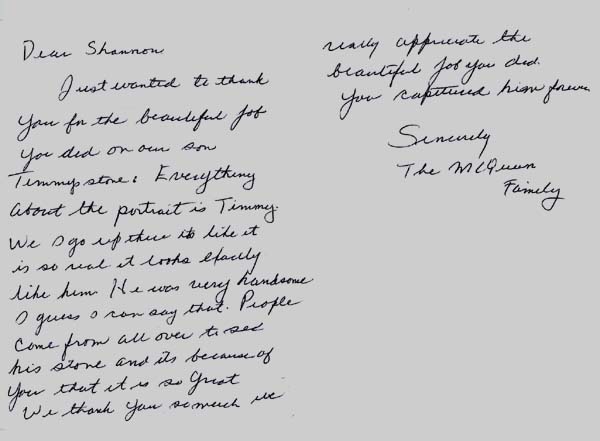 Dear Shannon
Just wanted to thank
you for the beautiful job
you did on our son
Timmys stone. Everything
about the portrait is Timmy.
We go up there its like it
is so real it looks exactly
like him. He was very handsome
I guess I can say that. People
come from all over to see
his stone and its because of
you that it is so great
We thank you so much we
really appreciate the
beautiful job you did.
You captured him forever
Sincerely
The McQueen
Family